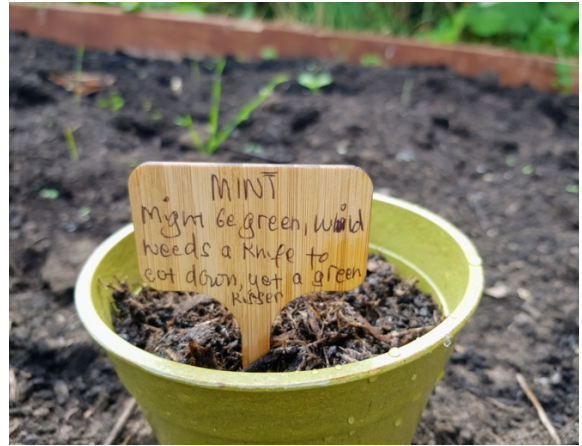 MINT
Might be green, wild
needs a knife to
cut down, yet a green